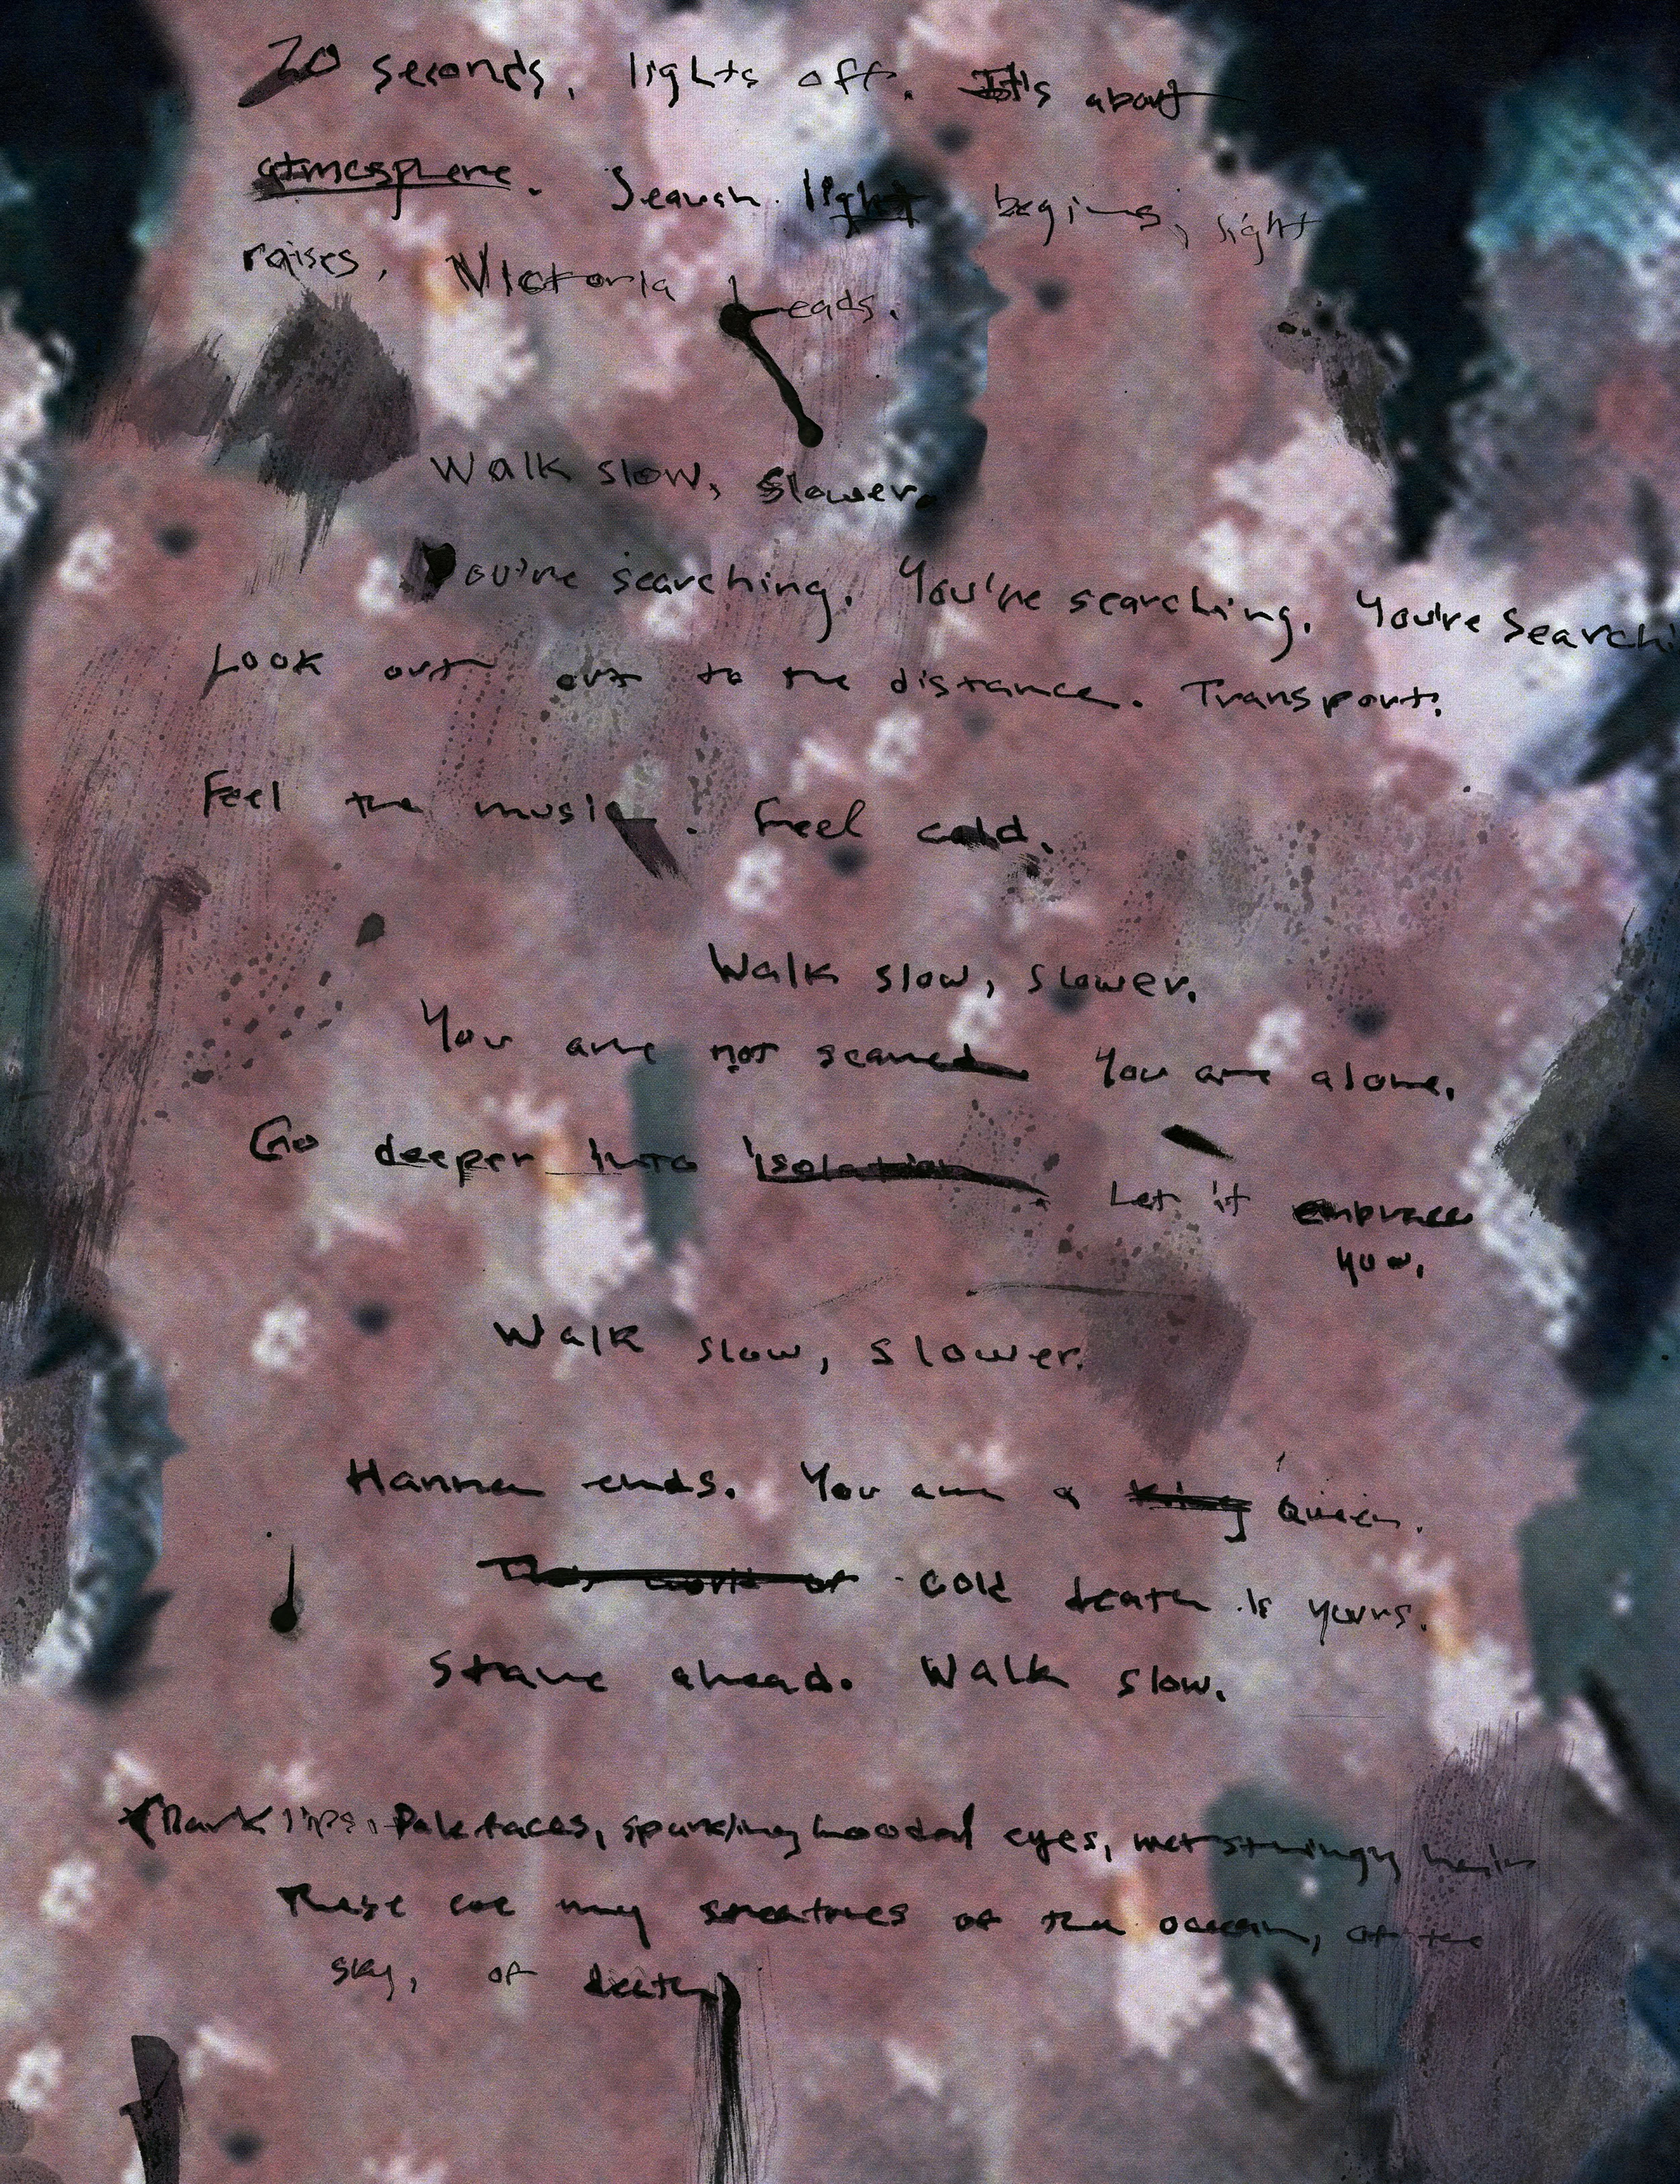 20 seconds, lights off. It's about
atmosphere. Search light begins, light
raises, Victoria leads.
Walk slow, slower.
You're searching. You're searching. You're searchi
Look out out to the distance. Transport.
Feel the music. Feel cold.
Walk slow, slower.
You are not scared You are alone.
Go deeper into isolation Let it embrace
you.
Walk slow, slower.
Hanna ends. You are a king Queen.
This world of cold death is yours.
Stare ahead. Walk slow.
(Dark lips, Pale faces, sparkling hooded eyes, wet stringy hair
These are my creatures of the ocean, of the
sky, of death)